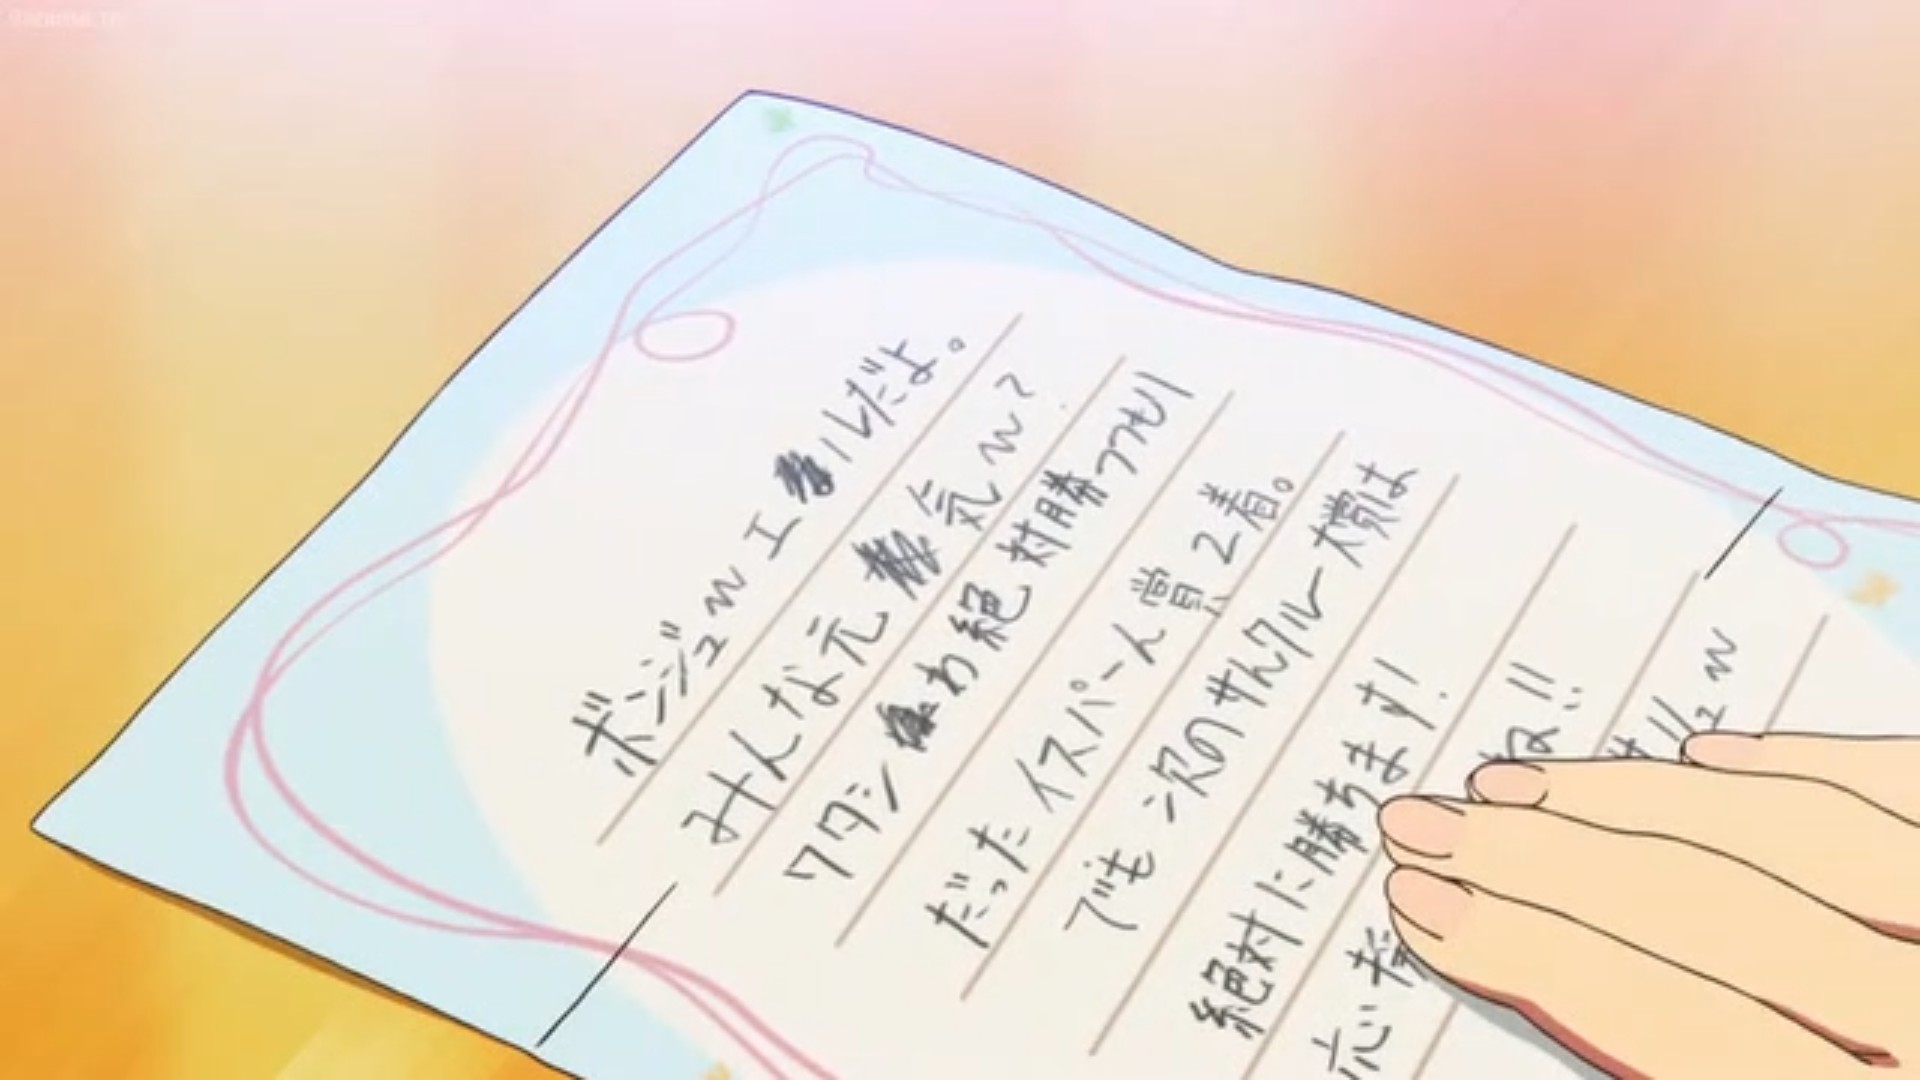 ボンジュ〜エルだよ。
みんな元気〜?
ワタシわ絶対勝つつもり
だったイスパーん賞2着。
でも次のサんクルー大賞は
絶対に勝ちます!
応援
ね!!